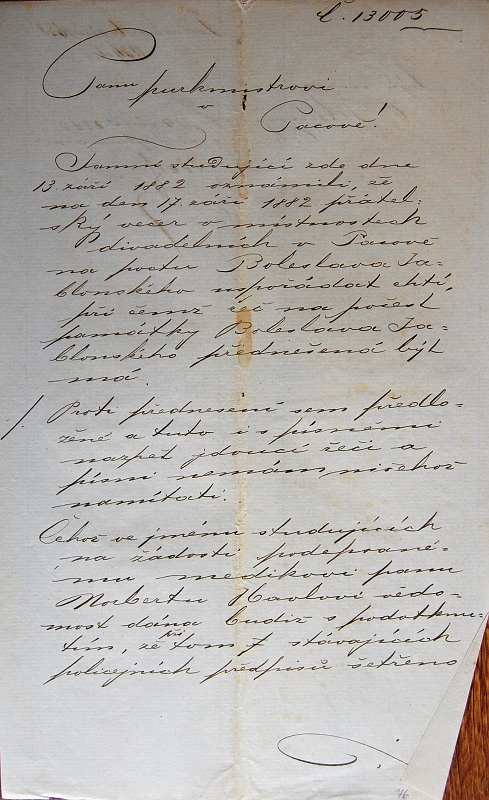 č. 13005
Panu purkmistrovi
v
Pacově!
Tamní studující zde dne
13. září 1882 oznámili, že
na den 17. září 1882 přátel-
ský večer v místnostech
divadelních v Pacově
na poctu Boleslava Ja-
blonského uspořádat chtí,
při čemž řeč na počest
památky Boleslava Ja-
blonského přednešená býti
má.
Proti přednesení sem předlo-
žené a tuto i s písněmi
nazpět jdoucí řeči a
písní nemám ničehož
namítati.
Čehož ve jménu studujících
na žádosti podepsané-
mu medikovi panu
Norbertu Havlovi vědo-
most dána budiž s podotknu-
tím, že při tom stávajících
policejních předpisů šetřeno
76